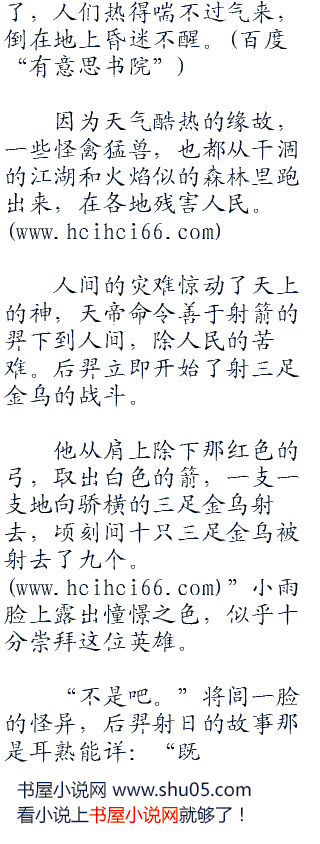 了，人们热得喘不过气来，
倒在地上昏迷不醒。(百度
“有意思书院”)
因为天气酷热的缘故，
一些怪禽猛兽，也都从干涸
的江湖和火焰似的森林里跑
出来，在各地残害人民。
(www.hcihci66.com)
人间的灾难惊动了天上
的神，天帝命令善于射箭的
羿下到人间，除人民的苦
难。后羿立即开始了射三足
金乌的战斗。
他从肩上除下那红色的
弓，取出白色的箭，一支一
支地向骄横的三足金乌射
去，顷刻间十只三足金乌被
射去了九个。
(www.hcihci66.com)”小雨
脸上露出憧憬之色，似乎十
分崇拜这位英雄。
“不是吧。”将闾一脸
的怪异，后羿射日的故事那
是耳熟能详：“既
书屋小说网 www.shu05.com
看小说上书屋小说网就够了！